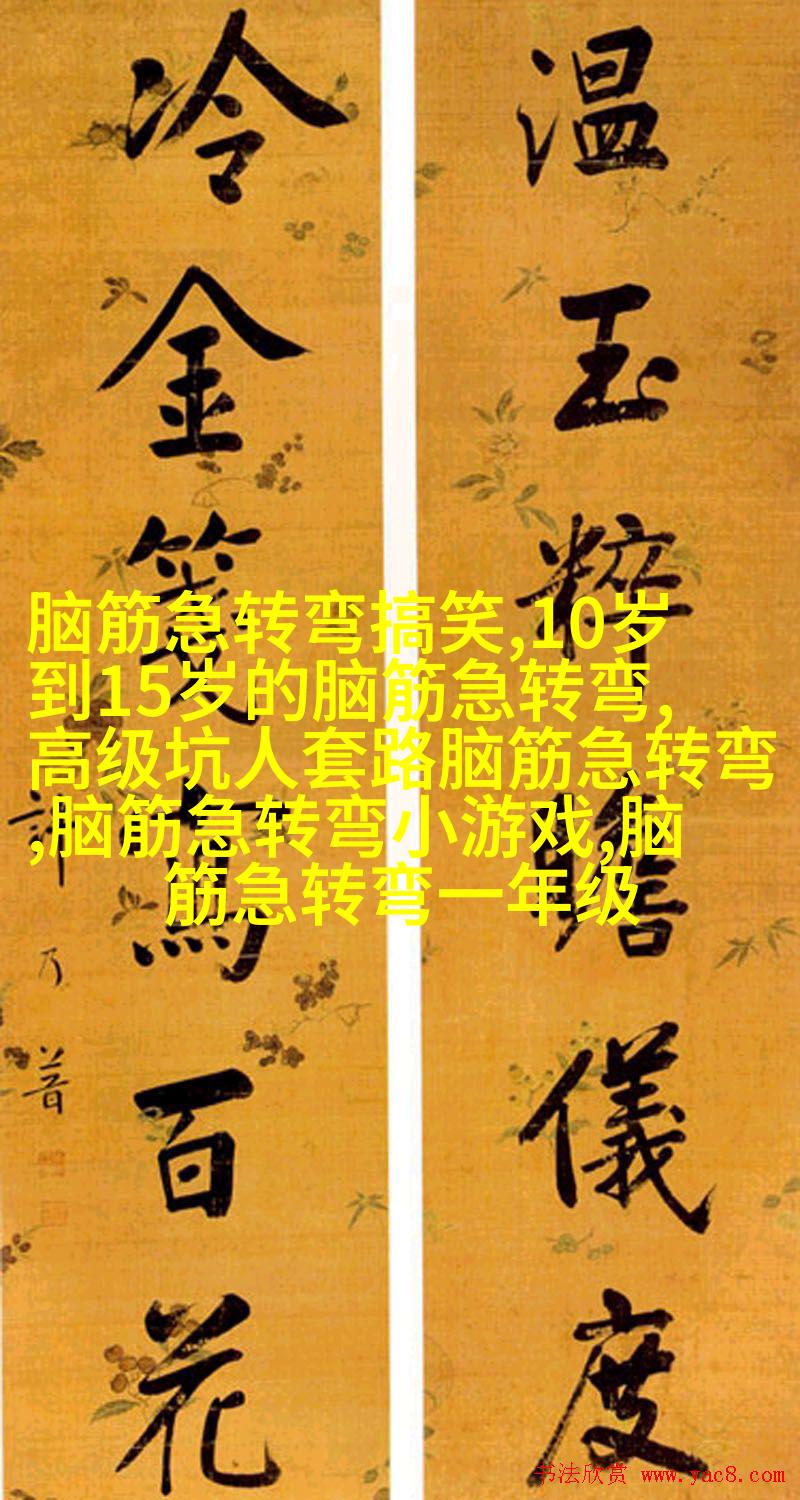 温玉粹瞻儀度
冷金箋寫百花
許乃普
脑筋急转弯搞笑,10岁
到15岁的脑筋急转弯,
高级坑人套路脑筋急转弯
,脑筋急转弯小游戏,脑
筋急转弯一年级
书法欣赏 www.yac8.com